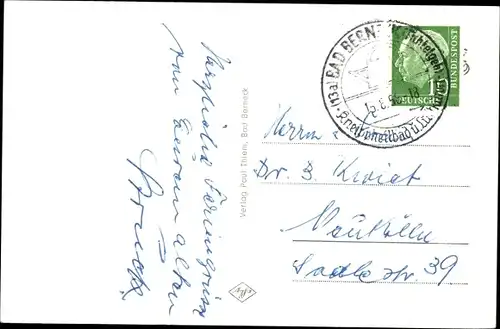 Herzliche Feriengrüsse
von Eurem alten
Verlag Paul Thiem, Bad Berneck
(13a) BAD BERNECK (Fichtelgeb)
Kneippheilbad u.
DEUTSCHE
BUNDESPOST
Herrn
Dr. B. Kwiat
Neukölln
Saalestr. 39